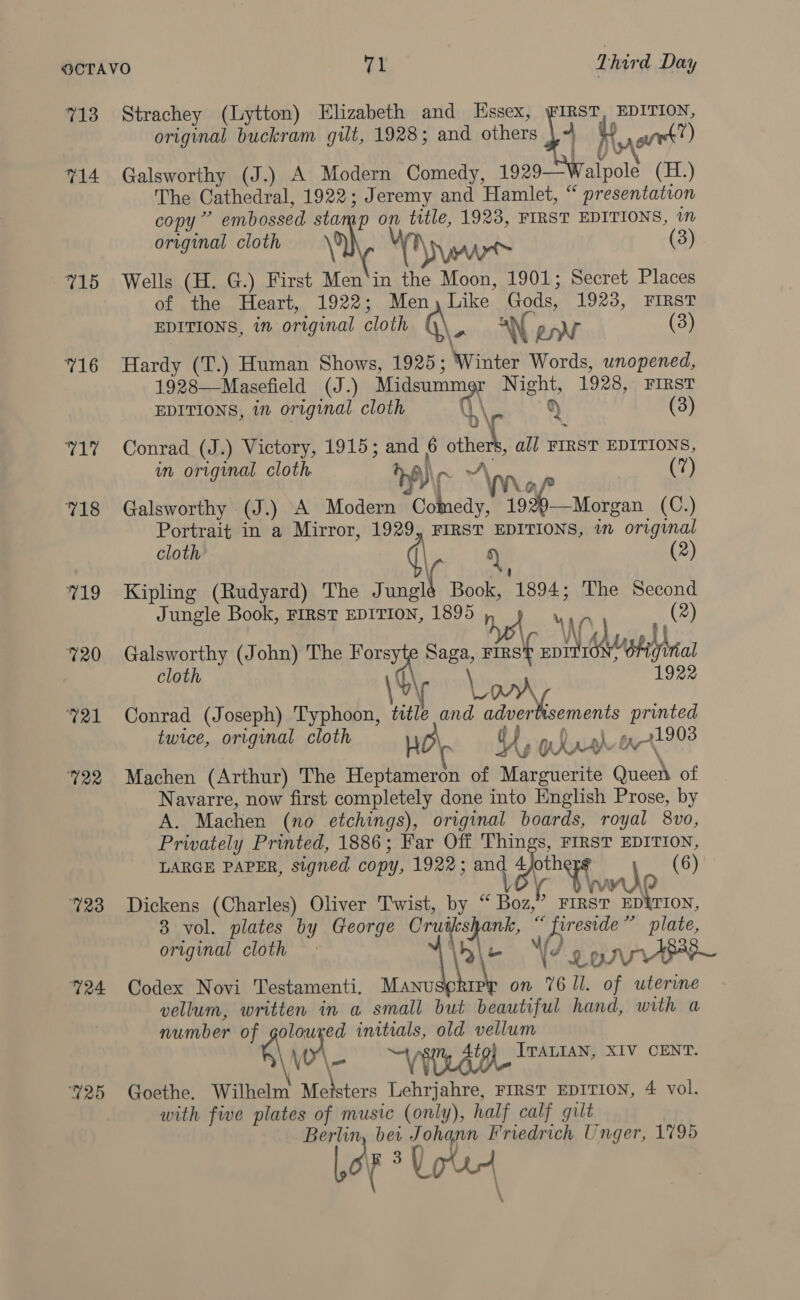 OCTAVO 71 Third Day
713 Strachey (Lytton) Elizabeth and Essex, FIRST EDITION,
original buckram gilt, 1928; and others (7)
714 Galsworthy (J.) A Modern Comedy, 1929—Walpole (H.)
The Cathedral, 1922; Jeremy and Hamlet, “ presentation
copy” embossed stamp on title, 1923, FIRST EDITIONS, in
original cloth (3)
715 Wells (H. G.) First Men in the Moon, 1901; Secret Places
of the Heart, 1922; Men Like Gods, 1923, FIRST
EDITIONS, in original cloth (3)
716 Hardy (T.) Human Shows, 1925; Winter Words, unopened,
1928—Masefield (J.) Midsummer Night, 1928, FIRST
EDITIONS, in original cloth (3)
717 Conrad (J.) Victory, 1915; and 6 others, all FIRST EDITIONS,
in original cloth (7)
718 Galsworthy (J.) A Modern Comedy, 1929—Morgan (C.)
Portrait in a Mirror, 1929, FIRST EDITIONS, in original
cloth (2)
719 Kipling (Rudyard) The Jungle Book, 1894; The Second
Jungle Book, FIRST EDITION, 1895 (2)
720 Galsworthy (John) The Forsyte Saga, FIRST EDITION, original
cloth 1922
721 Conrad (Joseph) Typhoon, title and advertisements printed
twice, original cloth 1903
722 Machen (Arthur) The Heptameron of Marguerite Queen of
Navarre, now first completely done into English Prose, by
A. Machen (no etchings), original boards, royal 8vo,
Privately Printed, 1886; Far Off Things, FIRST EDITION,
LARGE PAPER, signed copy, 1922; and 4 others (6)
723 Dickens (Charles) Oliver Twist, by “ Boz,” FIRST EDITION,
3 vol. plates by George Cruikshank, “ fireside ” plate,
original cloth 1838
724 Codex Novi Testamenti. MANUSCRIPT on 76 ll. of uterine
vellum, written in a small but beautiful hand, with a
number of coloured initials, old vellum
ITALIAN, XIV CENT.
725 Goethe. Wilhelm Meisters Lehrjahre, FIRST EDITION, 4 vol.
with five plates of music (only), half calf gilt
Berlin, bei Johann Friedrich Unger, 1795